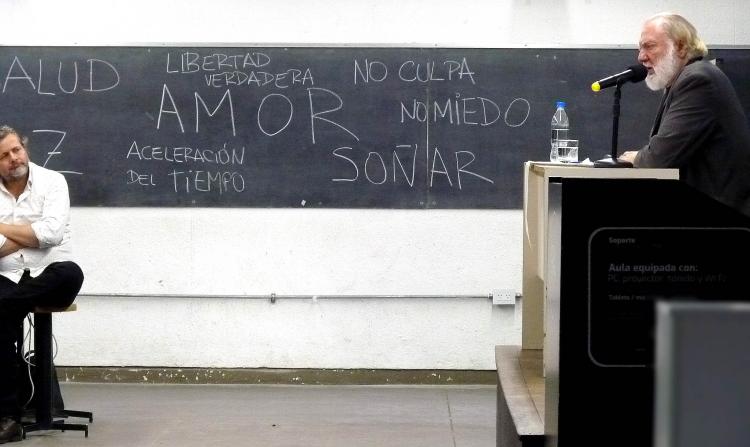 SALUD
LIBERTAD
VERDADERA
AMOR
NO CULPA
NO MIEDO
Z
ACELERACIÓN
DEL TIEMPO
SOÑAR
Soporte
Aula equipada con:
PC, proyector, sonido y Wi Fi